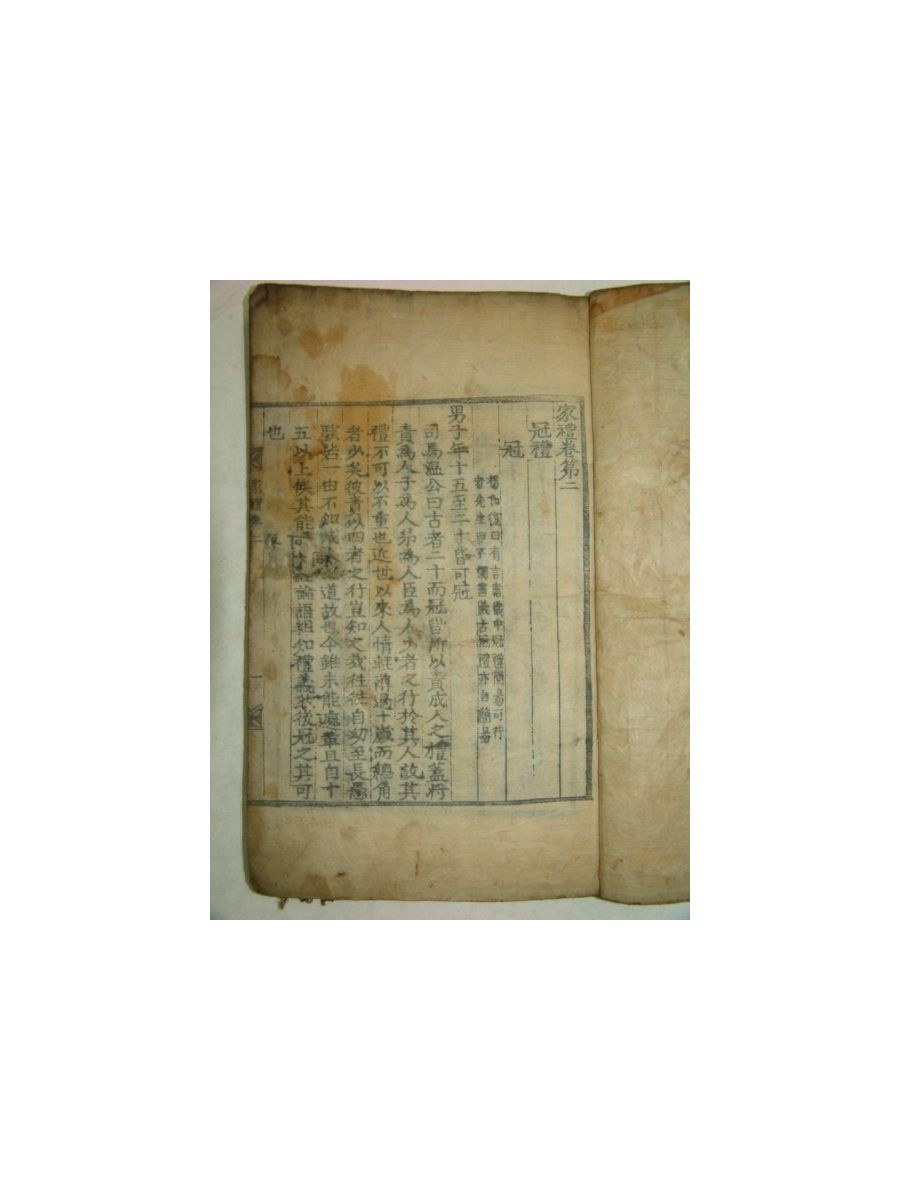 家禮卷第二
冠禮
冠
楊氏復曰有言書儀中冠禮簡易可行
者先生曰不獨書儀古冠禮亦自簡易
男子年十五至二十皆可冠
司馬温公曰古者二十而冠皆所以責成人之禮蓋將
責為人子為人弟為人臣為人少者之行於其人故其
禮不可以不重也近世以來人情輕薄過十歲而總角
者少矣彼責以四者之行豈知之哉往往自幼至長愚
騃若一由不知成人之道故也今雖未能遽革且自十
五以上俟其能 經論語粗知禮義然後冠之其可
也